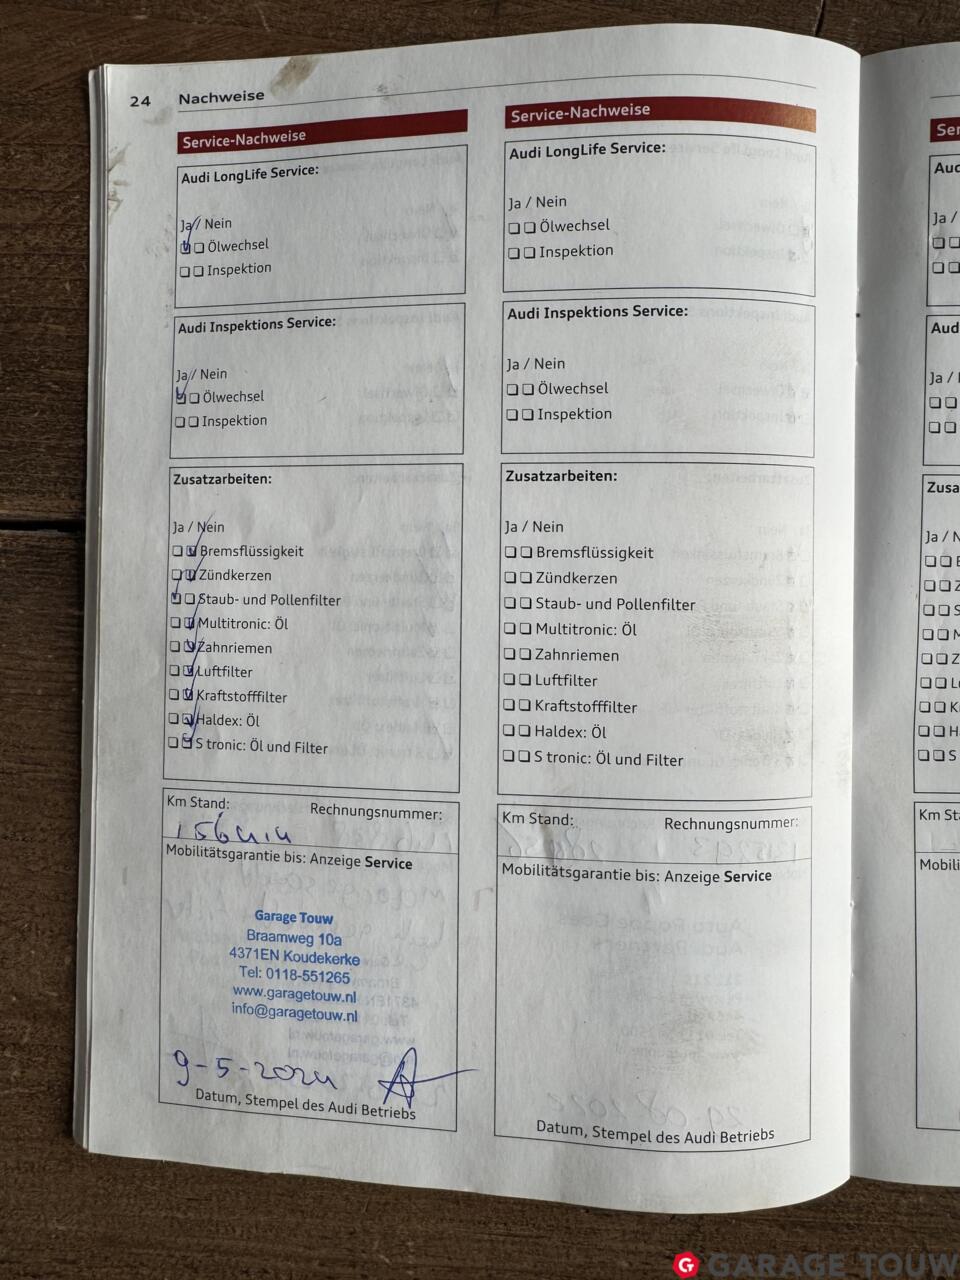 24 Nachweise
Service-Nachweise
Audi LongLife Service:
Ja / Nein
Ölwechsel
Inspektion
Audi Inspektions Service:
Ja / Nein
Ölwechsel
Inspektion
Zusatzarbeiten:
Ja / Nein
Bremsflüssigkeit
Zündkerzen
Staub- und Pollenfilter
Multitronic: Öl
Zahnriemen
Luftfilter
Kraftstofffilter
Haldex: Öl
S tronic: Öl und Filter
Km Stand: Rechnungsnummer:
Mobilitätsgarantie bis: Anzeige Service
Garage Touw
Braamweg 10a
4371EN Koudekerke
Tel: 0118-551265
www.garagetouw.nl
info@garagetouw.nl
9-5-2024
Datum, Stempel des Audi Betriebs
Service-Nachweise
Audi LongLife Service:
Ja / Nein
Ölwechsel
Inspektion
Audi Inspektions Service:
Ja / Nein
Ölwechsel
Inspektion
Zusatzarbeiten:
Ja / Nein
Bremsflüssigkeit
Zündkerzen
Staub- und Pollenfilter
Multitronic: Öl
Zahnriemen
Luftfilter
Kraftstofffilter
Haldex: Öl
S tronic: Öl und Filter
Km Stand: Rechnungsnummer:
Mobilitätsgarantie bis: Anzeige Service
Datum, Stempel des Audi Betriebs
GARAGE TOUW